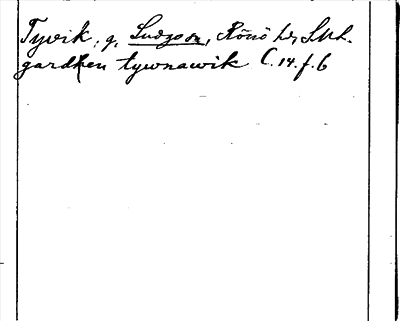 Tyvik, g, Ludgo sn, Rönö hd, Sdl.
gardhen tywnawik C. 14. f. 6